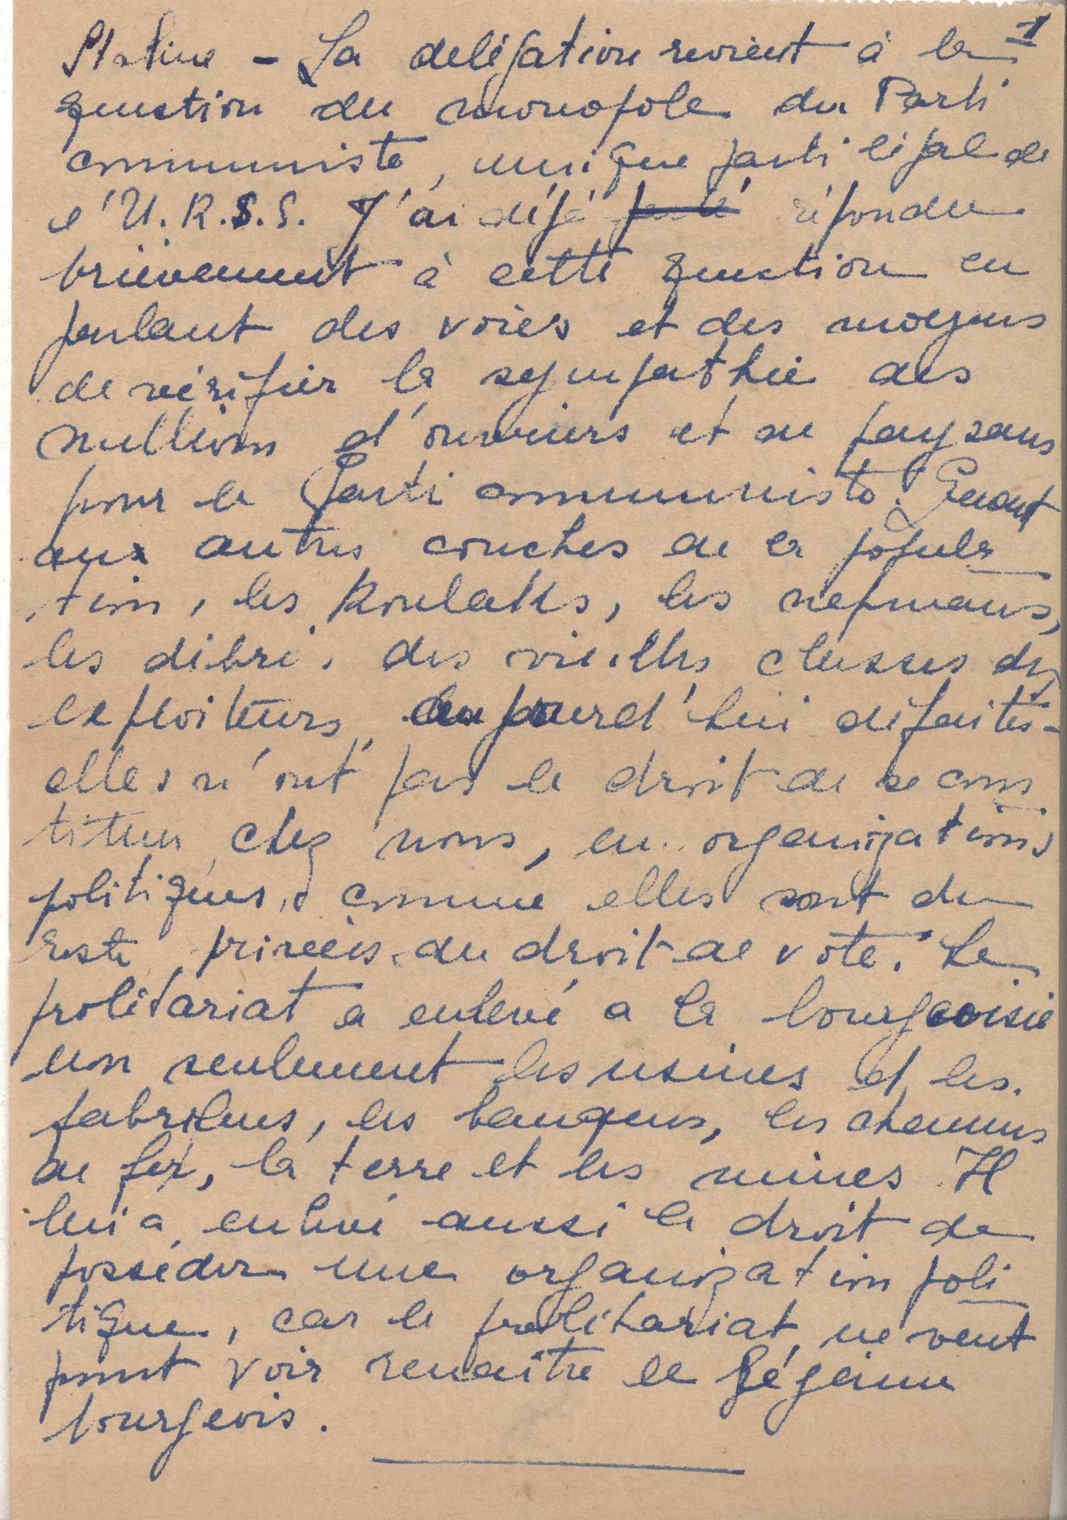 1
Staline - La délégation revient à la
question du monopole du Parti
communiste, unique parti légal de
l'U.R.S.S. J'ai déjà répondu
brièvement à cette question en
parlant des voies et des moyens
de vérifier la sympathie des
millions d'ouvriers et de paysans
pour le Parti communiste. Quant
aux autres couches de la popula
tion, les Koulaks, les nepmans,
les débris des vieilles classes des
exploiteurs, aujourd'hui défaites -
elles n'ont pas le droit de se cons
tituer chez nous, en organizations
politiques, comme elles sont du
reste privées du droit de vote. Le
prolétariat a enlevé a la bourgeoisie
non seulement les usines et les
fabriques, les banques, les chemins
de fer, la terre et les mines Il
lui a enlevé aussi le droit de
posséder une organization poli
tique, car le prolétariat ne veut
point voir renaître le Régime
bourgeois.